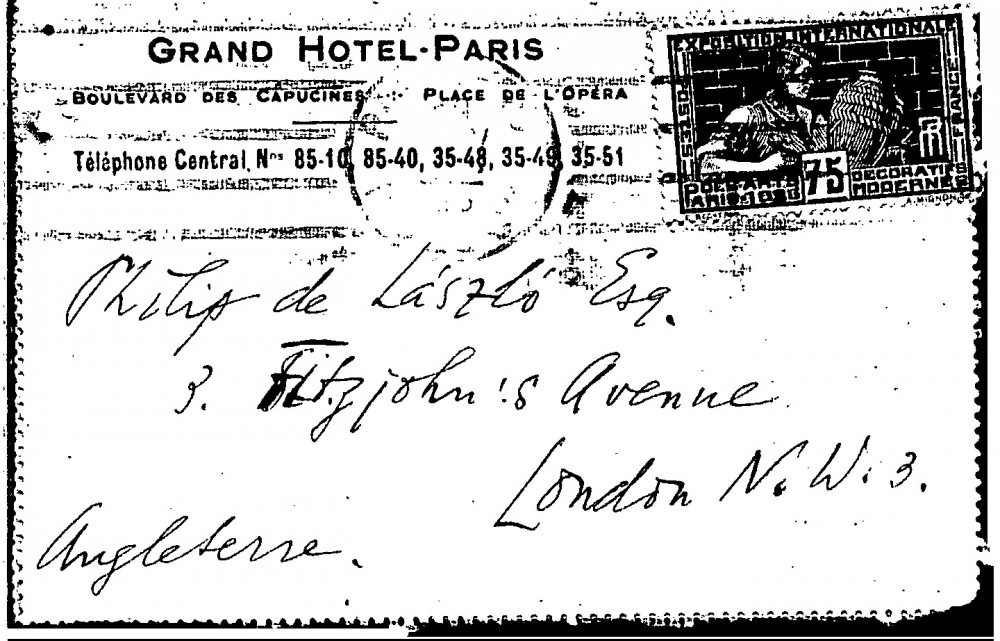 GRAND HOTEL-PARIS
BOULEVARD DES CAPUCINES PLACE DE L'OPÉRA
Téléphone Central, Nos 85-10, 85-40, 35-48, 35-49, 35-51
EXPOSITION INTERNATIONALE
POSTES
FRANCE
RF
75
DECORATIFS
PARIS-1925
MODERNES
Philip de László Esq.
3. Fitzjohn's Avenue
London N.W.3.
Angleterre.